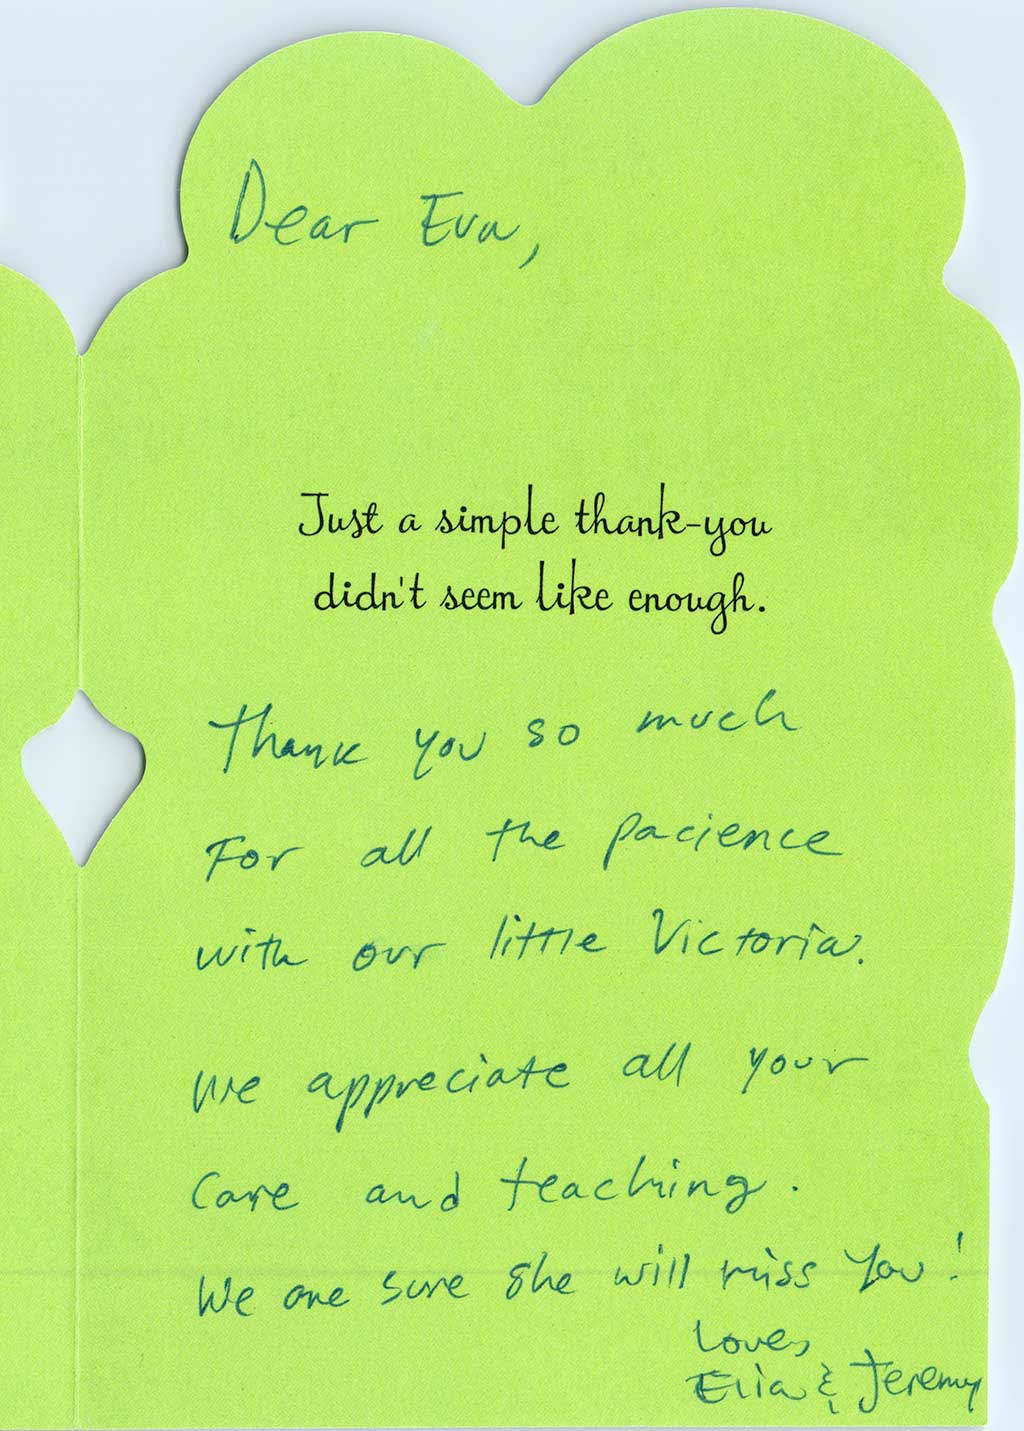 Dear Eva,
Just a simple thank-you
didn't seem like enough.
Thank you so much
For all the pacience
with our little Victoria.
We appreciate all your
Care and teaching.
We are sure she will miss you!
Loves,
Elia & Jeremy